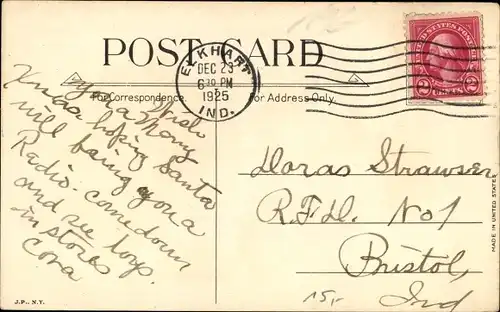 POST CARD
ELKHART
DEC 23
6 30 PM
1925
IND.
UNITED STATES POSTAGE
2 CENTS 2
For Correspondence.
For Address Only.
Wish
you a Merry
Xmas hoping Santa
will bring you a
Radio. come down
and see toys
in stores
Cora
Doras Strawser
R.F.D. No 1
Bristol,
Ind
15,-
MADE IN UNITED STATES
J.P., N.Y.